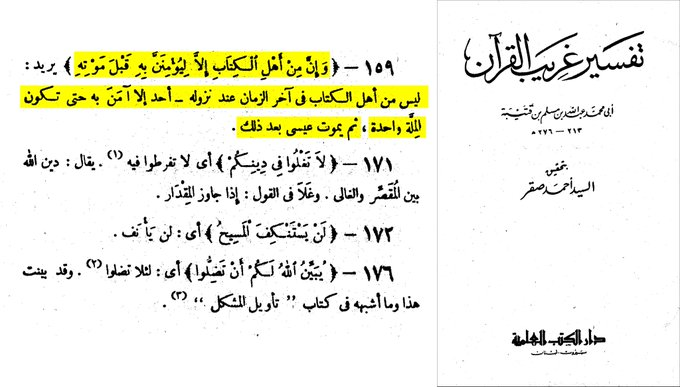 ١٥٩ – ﴿ وَإِنْ مِنْ أَهْلِ الْكِتَابِ إِلاَّ لَيُؤْمِنَنَّ بِهِ قَبْلَ مَوْتِهِ ﴾ يريد :
ليس من أهل الكتاب فى آخر الزمان عند نزوله – أحد إلا آمَنَ به حتى تكون
المِلَّة واحدة ، ثم يموت عيسى بعد ذلك .
١٧١ – ﴿ لاَ تَغْلُوا فِي دِينِكُمْ ﴾ أى لا تفرطوا فيه (١) . يقال : دين الله
بين المُقَصِّر والغالى . وغَلاَ فى القول : إذا جاوز المِقْدَار .
١٧٢ – ﴿ لَنْ يَسْتَنْكِفَ الْمَسِيحُ ﴾ أى : لن يَأْنف .
١٧٦ – ﴿ يُبَيِّنُ اللهُ لَكُمْ أَنْ تَضِلُّوا ﴾ أى : لئلا تضلوا (٢) . وقد بينت
هذا وما أشبهه فى كتاب " تأويل المشكل " (٣) .
تفسير غريب القرآن
أبى محمد عبد الله بن مسلم بن قتيبة
٢١٣ – ٢٧٦ هـ
بتحقيق
السيد أحمد صقر
دار الكتب العلمية
بيروت - لبنان